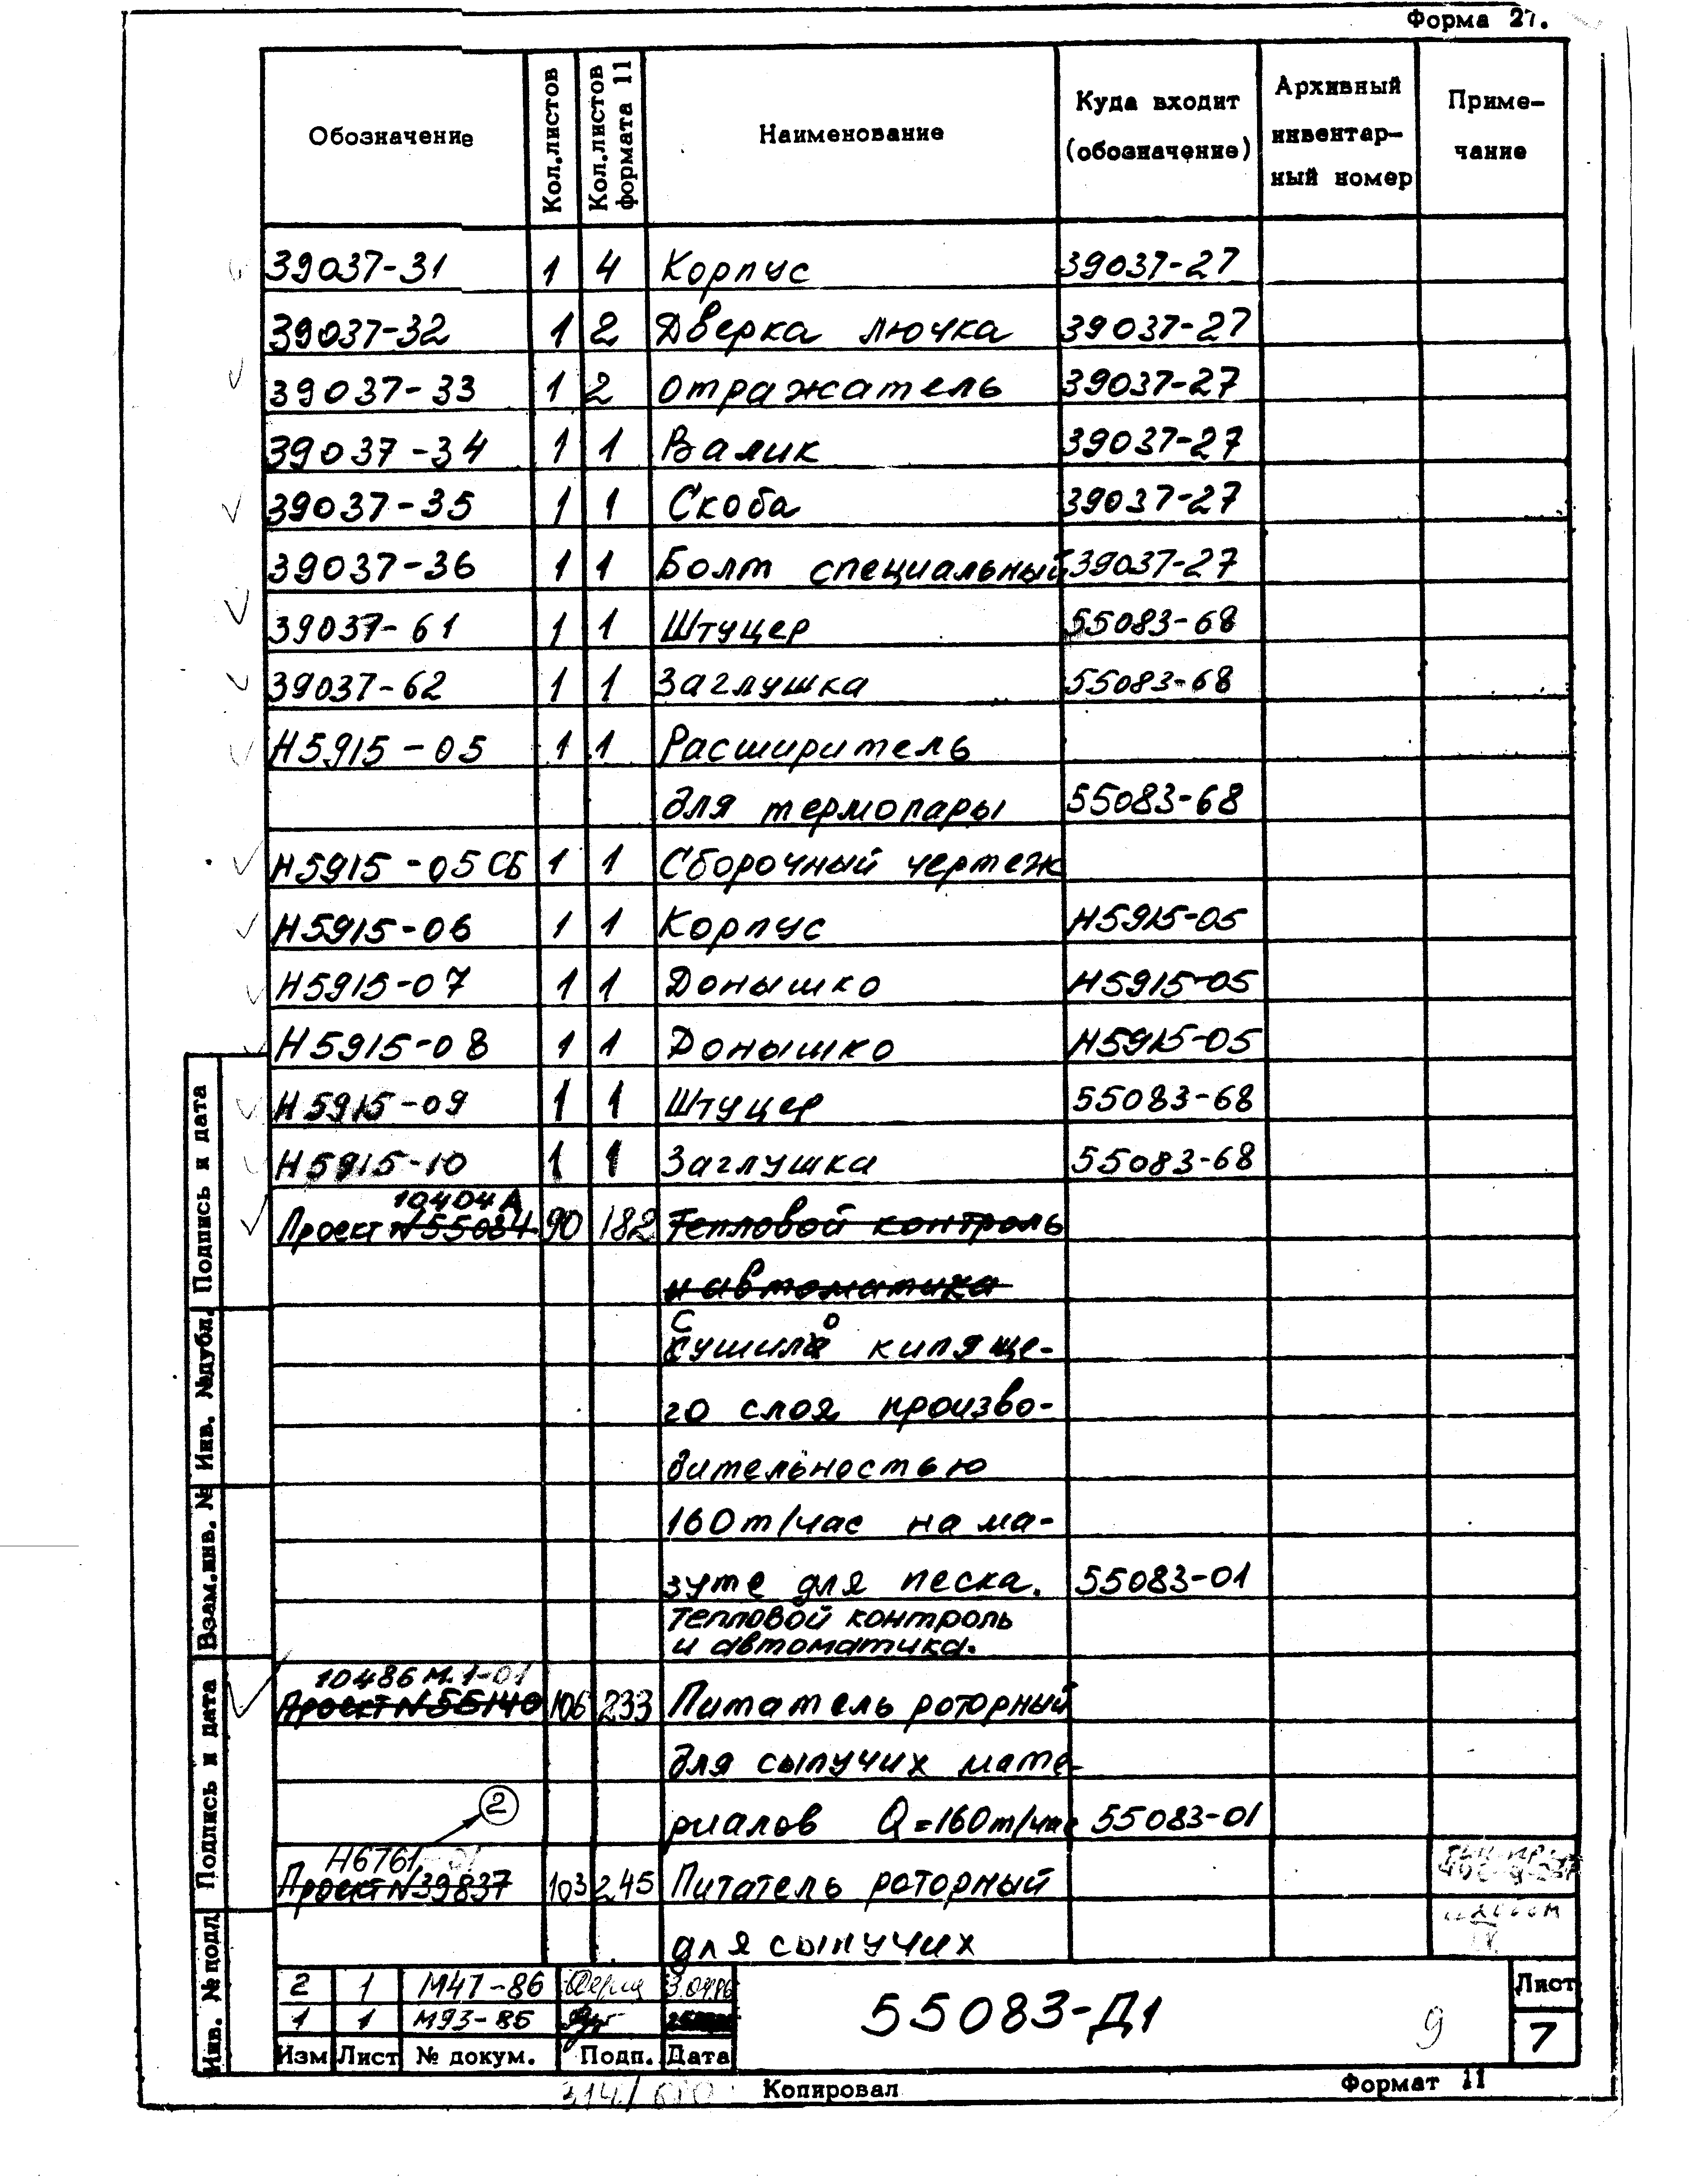 Форма 27.
Обозначение Кол.листов Кол.листов формата 11 Наименование Куда входит (обозначение) Архивный инвентар- ный номер Приме- чание
39037-31 1 4 Корпус 39037-27
39037-32 1 2 Дверка лючка 39037-27
39037-33 1 2 Отражатель 39037-27
39037-34 1 1 Валик 39037-27
39037-35 1 1 Скоба 39037-27
39037-36 1 1 Болт специальный 39037-27
39037-61 1 1 Штуцер 55083-68
39037-62 1 1 Заглушка 55083-68
Н5915-05 1 1 Расширитель
для термопары 55083-68
Н5915-05СБ 1 1 Сборочный чертеж
Н5915-06 1 1 Корпус Н5915-05
Н5915-07 1 1 Донышко Н5915-05
Н5915-08 1 1 Донышко Н5915-05
Н5915-09 1 1 Штуцер 55083-68
Н5915-10 1 1 Заглушка 55083-68
10404А
Проект N55084 90 182 Тепловой контроль
и автоматика
Сушило кипяще-
го слоя произво-
дительностью
160т/час на ма-
зуте для песка. 55083-01
Тепловой контроль
и автоматика.
10486М.1-01
Проект N55140 106 233 Питатель роторный
для сыпучих мате-
риалов Q=160т/час 55083-01
2
Н6761-01
Проект N39837 103 245 Питатель роторный
для сыпучих
2 1 М47-86
1 1 М93-85
Изм Лист № докум. Подп. Дата
55083-Д1
9
Лист
7
Копировал
Формат 11
Подпись и дата
Инв. №дубл.
Взам.инв. №
Подпись и дата
Инв. № подл